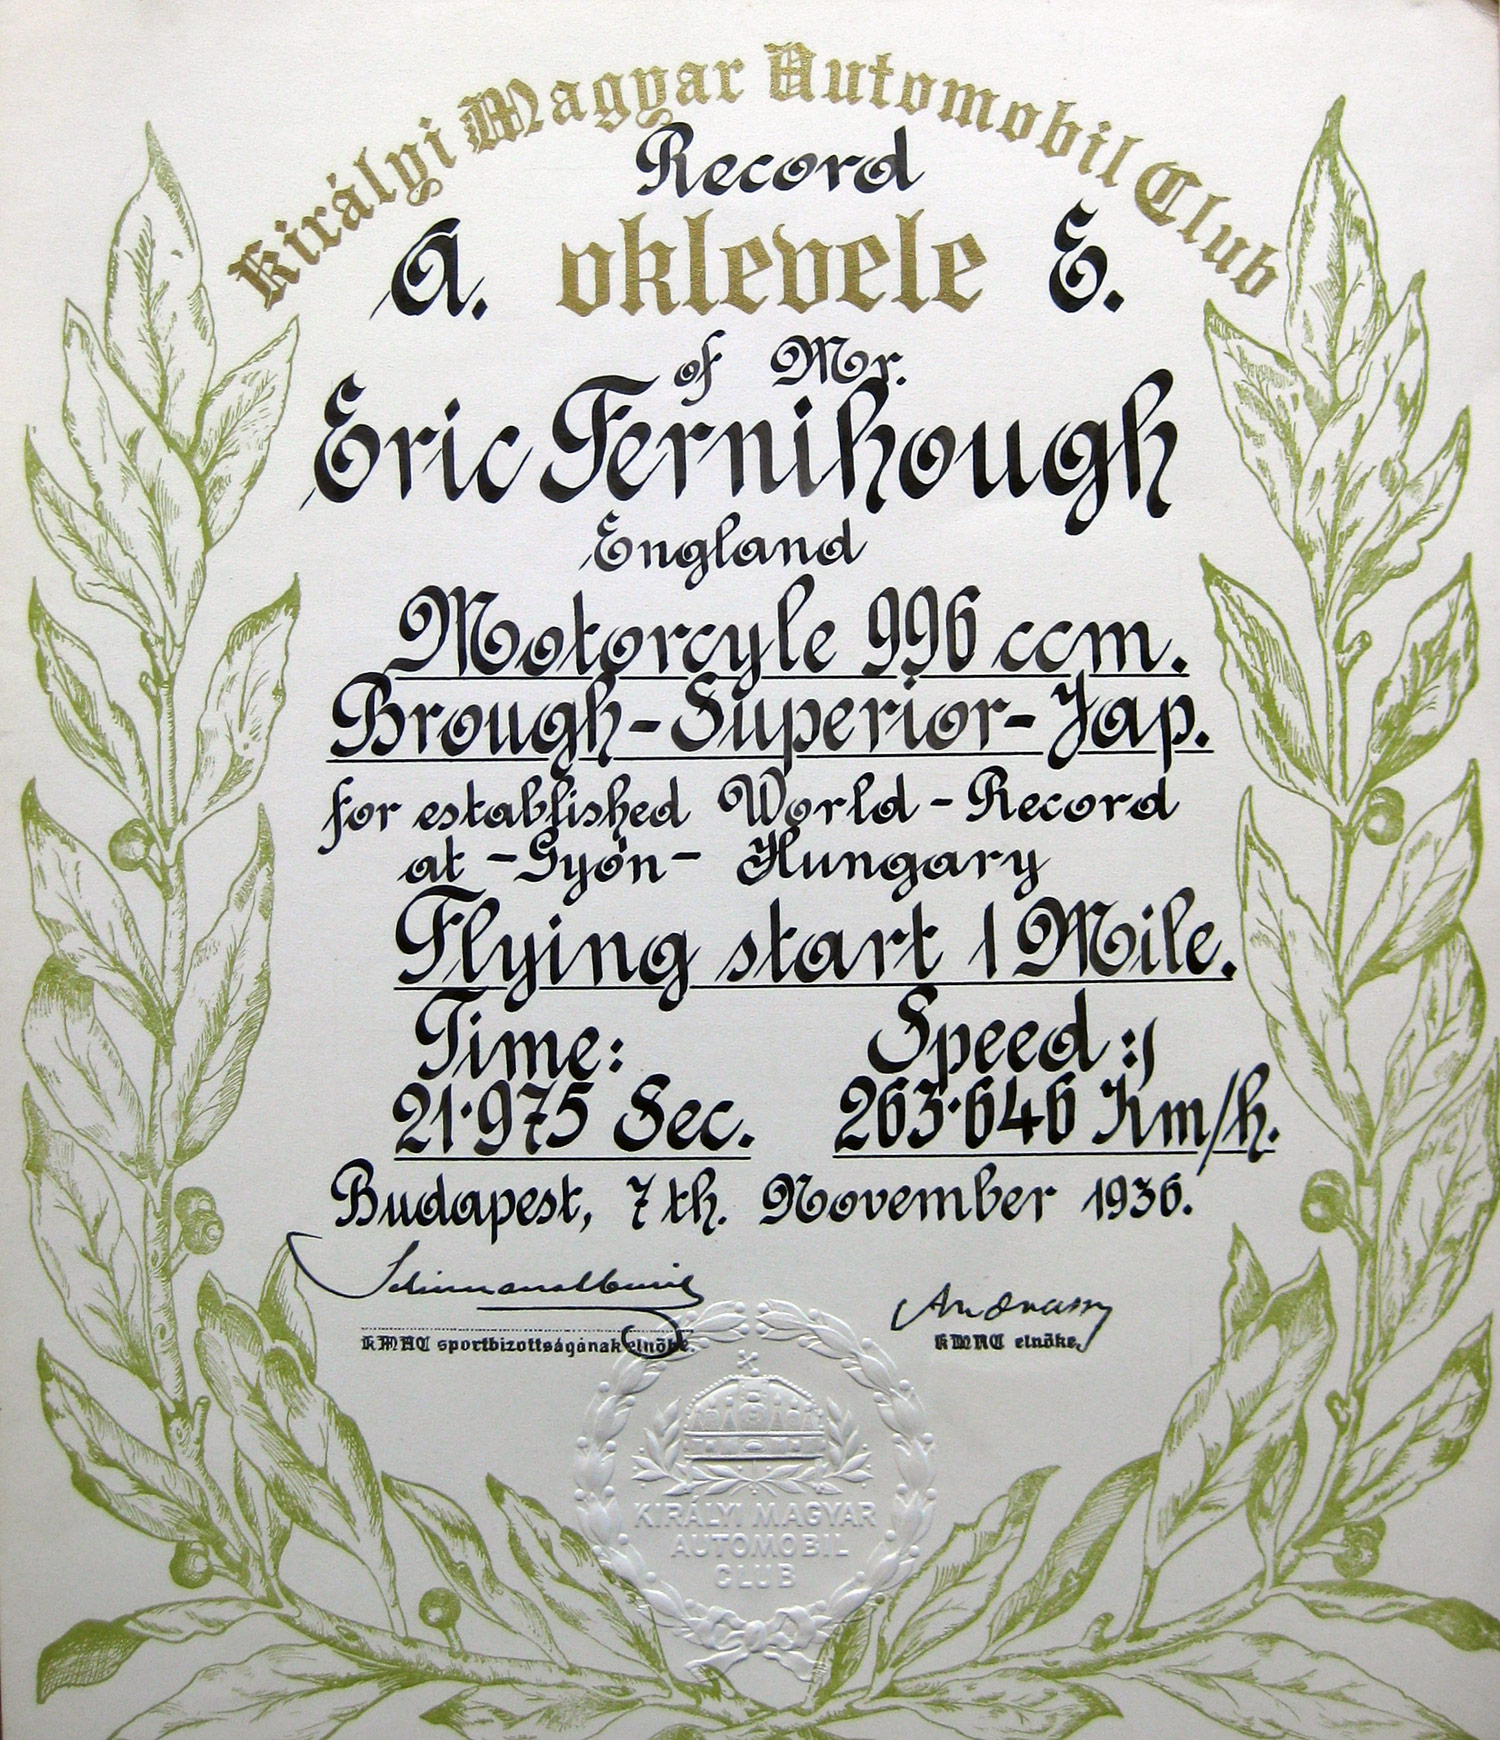 Királyi Magyar Automobil Club
Record
A. oklevele E.
of Mr.
Eric Fernihough
England
Motorcyle 996 ccm.
Brough-Superior-Jap.
for established World-Record
at -Gyón- Hungary
Flying start 1 Mile.
Time: Speed:
21·975 Sec. 263·646 Km/h.
Budapest, 7th. November 1936.
Andrassy
KMAC sportbizottságának elnöke. KMAC elnöke.
KIRÁLYI MAGYAR
AUTOMOBIL
CLUB